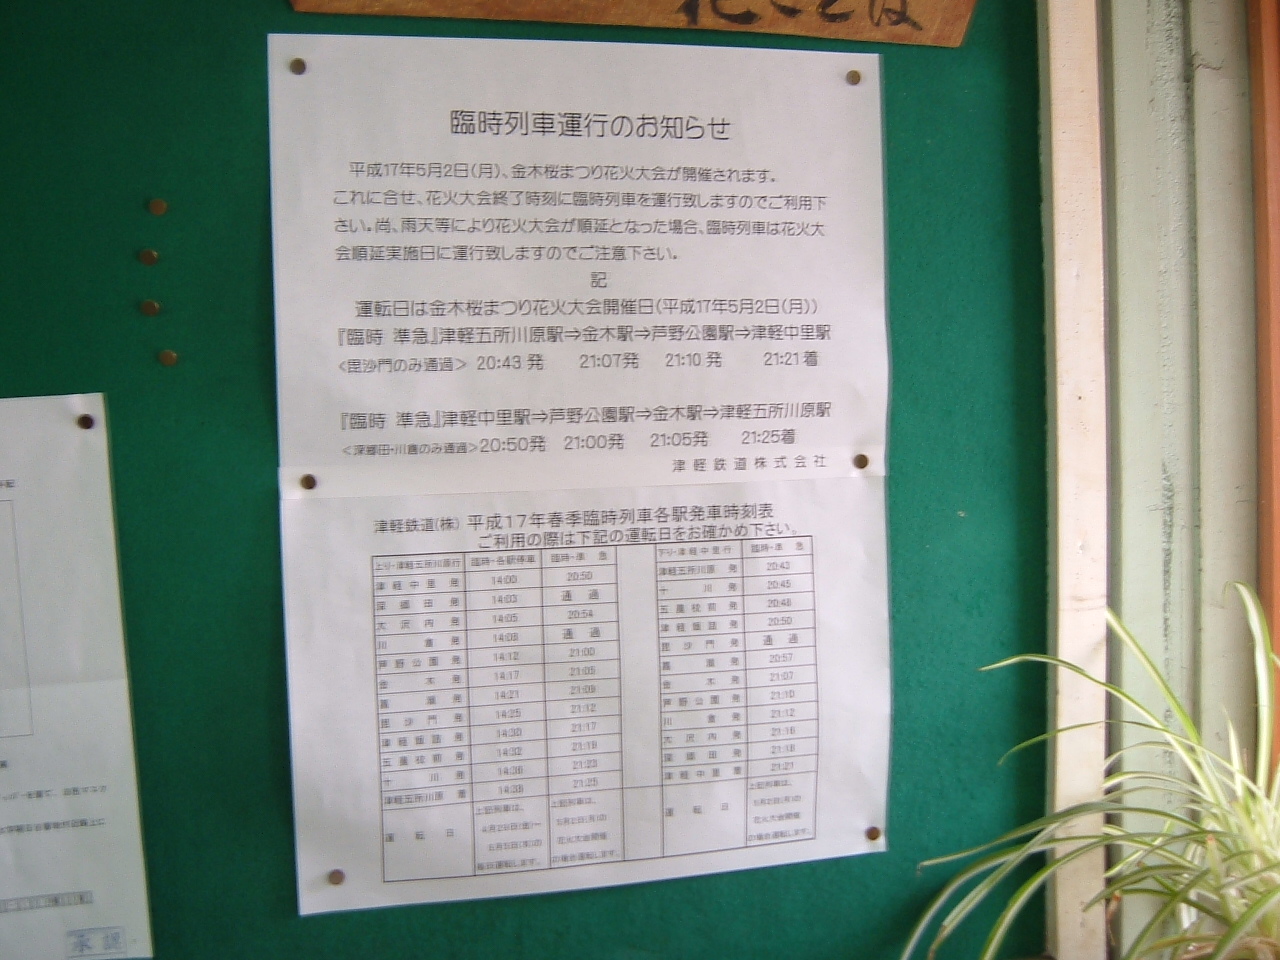 花ことば
臨時列車運行のお知らせ
平成17年5月2日(月)、金木桜まつり花火大会が開催されます。
これに合せ、花火大会終了時刻に臨時列車を運行致しますのでご利用下
さい。尚、雨天等により花火大会が順延となった場合、臨時列車は花火大
会順延実施日に運行致しますのでご注意下さい。
記
運転日は金木桜まつり花火大会開催日(平成17年5月2日(月))
『臨時 準急』津軽五所川原駅⇒金木駅⇒芦野公園駅⇒津軽中里駅
<毘沙門のみ通過> 20:43発 21:07発 21:10発 21:21着
『臨時 準急』津軽中里駅⇒芦野公園駅⇒金木駅⇒津軽五所川原駅
<深郷田・川倉のみ通過>20:50発 21:00発 21:05発 21:25着
津軽鉄道株式会社
津軽鉄道(株) 平成17年春季臨時列車各駅発車時刻表
ご利用の際は下記の運転日をお確かめ下さい。
上り・津軽五所川原行 臨時・各駅停車 臨時・準急
津軽中里発 14:00 20:50
深郷田発 14:03 通過
大沢内発 14:05 20:54
川倉発 14:09 通過
芦野公園発 14:12 21:00
金木発 14:17 21:05
嘉瀬発 14:21 21:09
毘沙門発 14:25 21:12
津軽飯詰発 14:30 21:17
五農校前発 14:32 21:19
十川発 14:36 21:23
津軽五所川原着 14:38 21:25
運転日
上記列車は、
4月29日(金)～
5月5日(木)の
毎日運転します。
上記列車は、
5月2日(月)の
花火大会開催
の場合運転します。
下り・津軽中里行 臨時・準急
津軽五所川原発 20:43
十川発 20:45
五農校前発 20:48
津軽飯詰発 20:50
毘沙門発 通過
嘉瀬発 20:57
金木発 21:07
芦野公園発 21:10
川倉発 21:12
大沢内発 21:16
深郷田発 21:18
津軽中里着 21:21
運転日
上記列車は、
5月2日(月)の
花火大会開催
の場合運転します。
承認